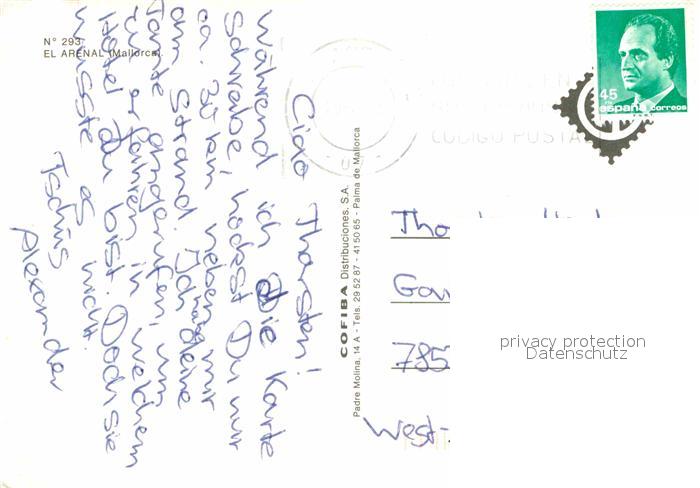 N° 293
EL ARENAL (Mallorca).
Ciao Thorsten!
Während ich die Karte
schreibe, hockst Du nur
ca. 30 km neben mir
am Strand. Ich habe Deine
Tante angerufen, um
zu erfahren in welchem
Hotel Du bist. Doch sie
wusste es nicht.
Tschüs
Alexander
COFIBA Distribuciones, S.A.
Padre Molina, 14 A - Tels. 29 52 87 - 415065 - Palma de Mallorca
45
españa correos
CODIGO POSTAL
785
West-
privacy protection
Datenschutz